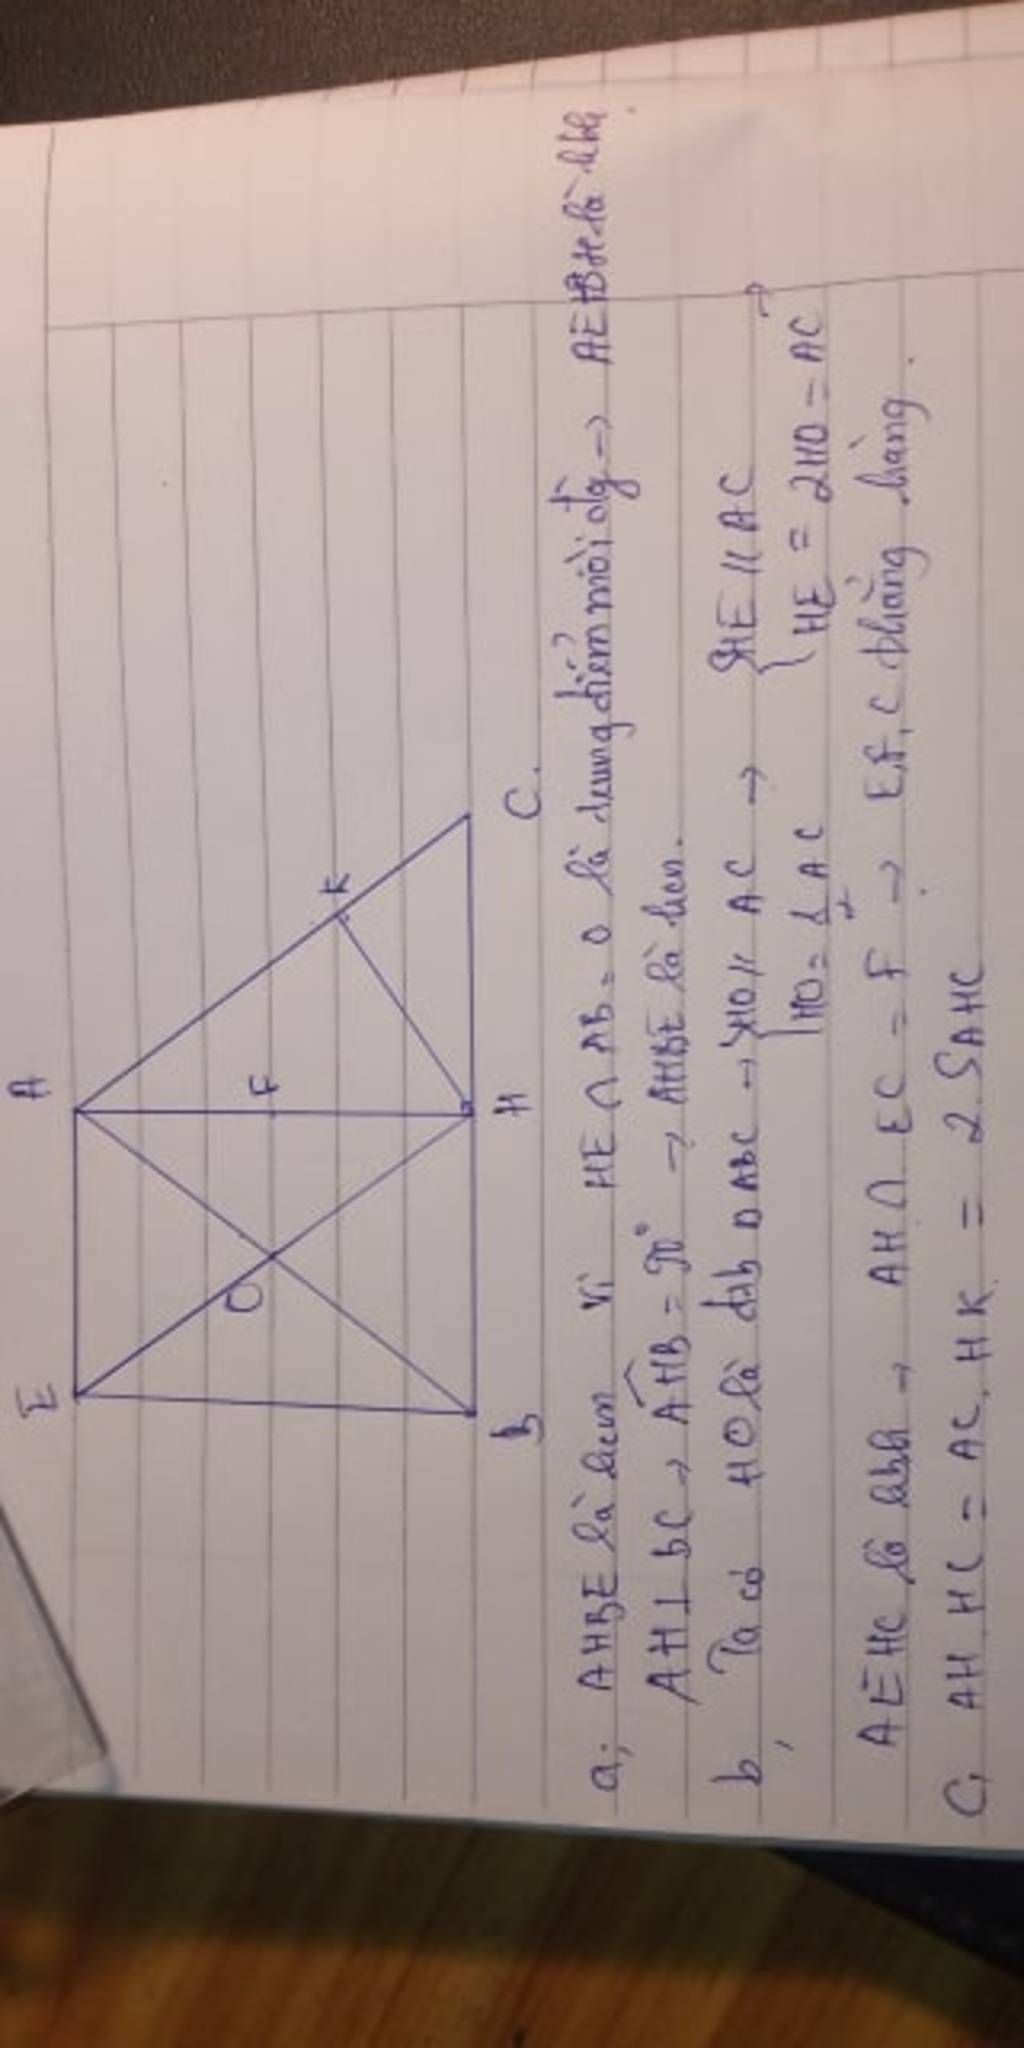 E A
O F K
B H C
a; AHBE là hcn vì HE ∩ AB = O là trung điểm mỗi đg → AEBH là hbh.
AH ⊥ BC → AHB = 90° → AHBE là hcn.
b, Ta có HO là đtb Δ ABC → { HO // AC → { HE // AC →
HO = 1/2 AC HE = 2HO = AC
AEHC là hbh → AH ∩ EC = F → E, F, C thẳng hàng.
C, AH . HC = AC . HK = 2 . SAHC